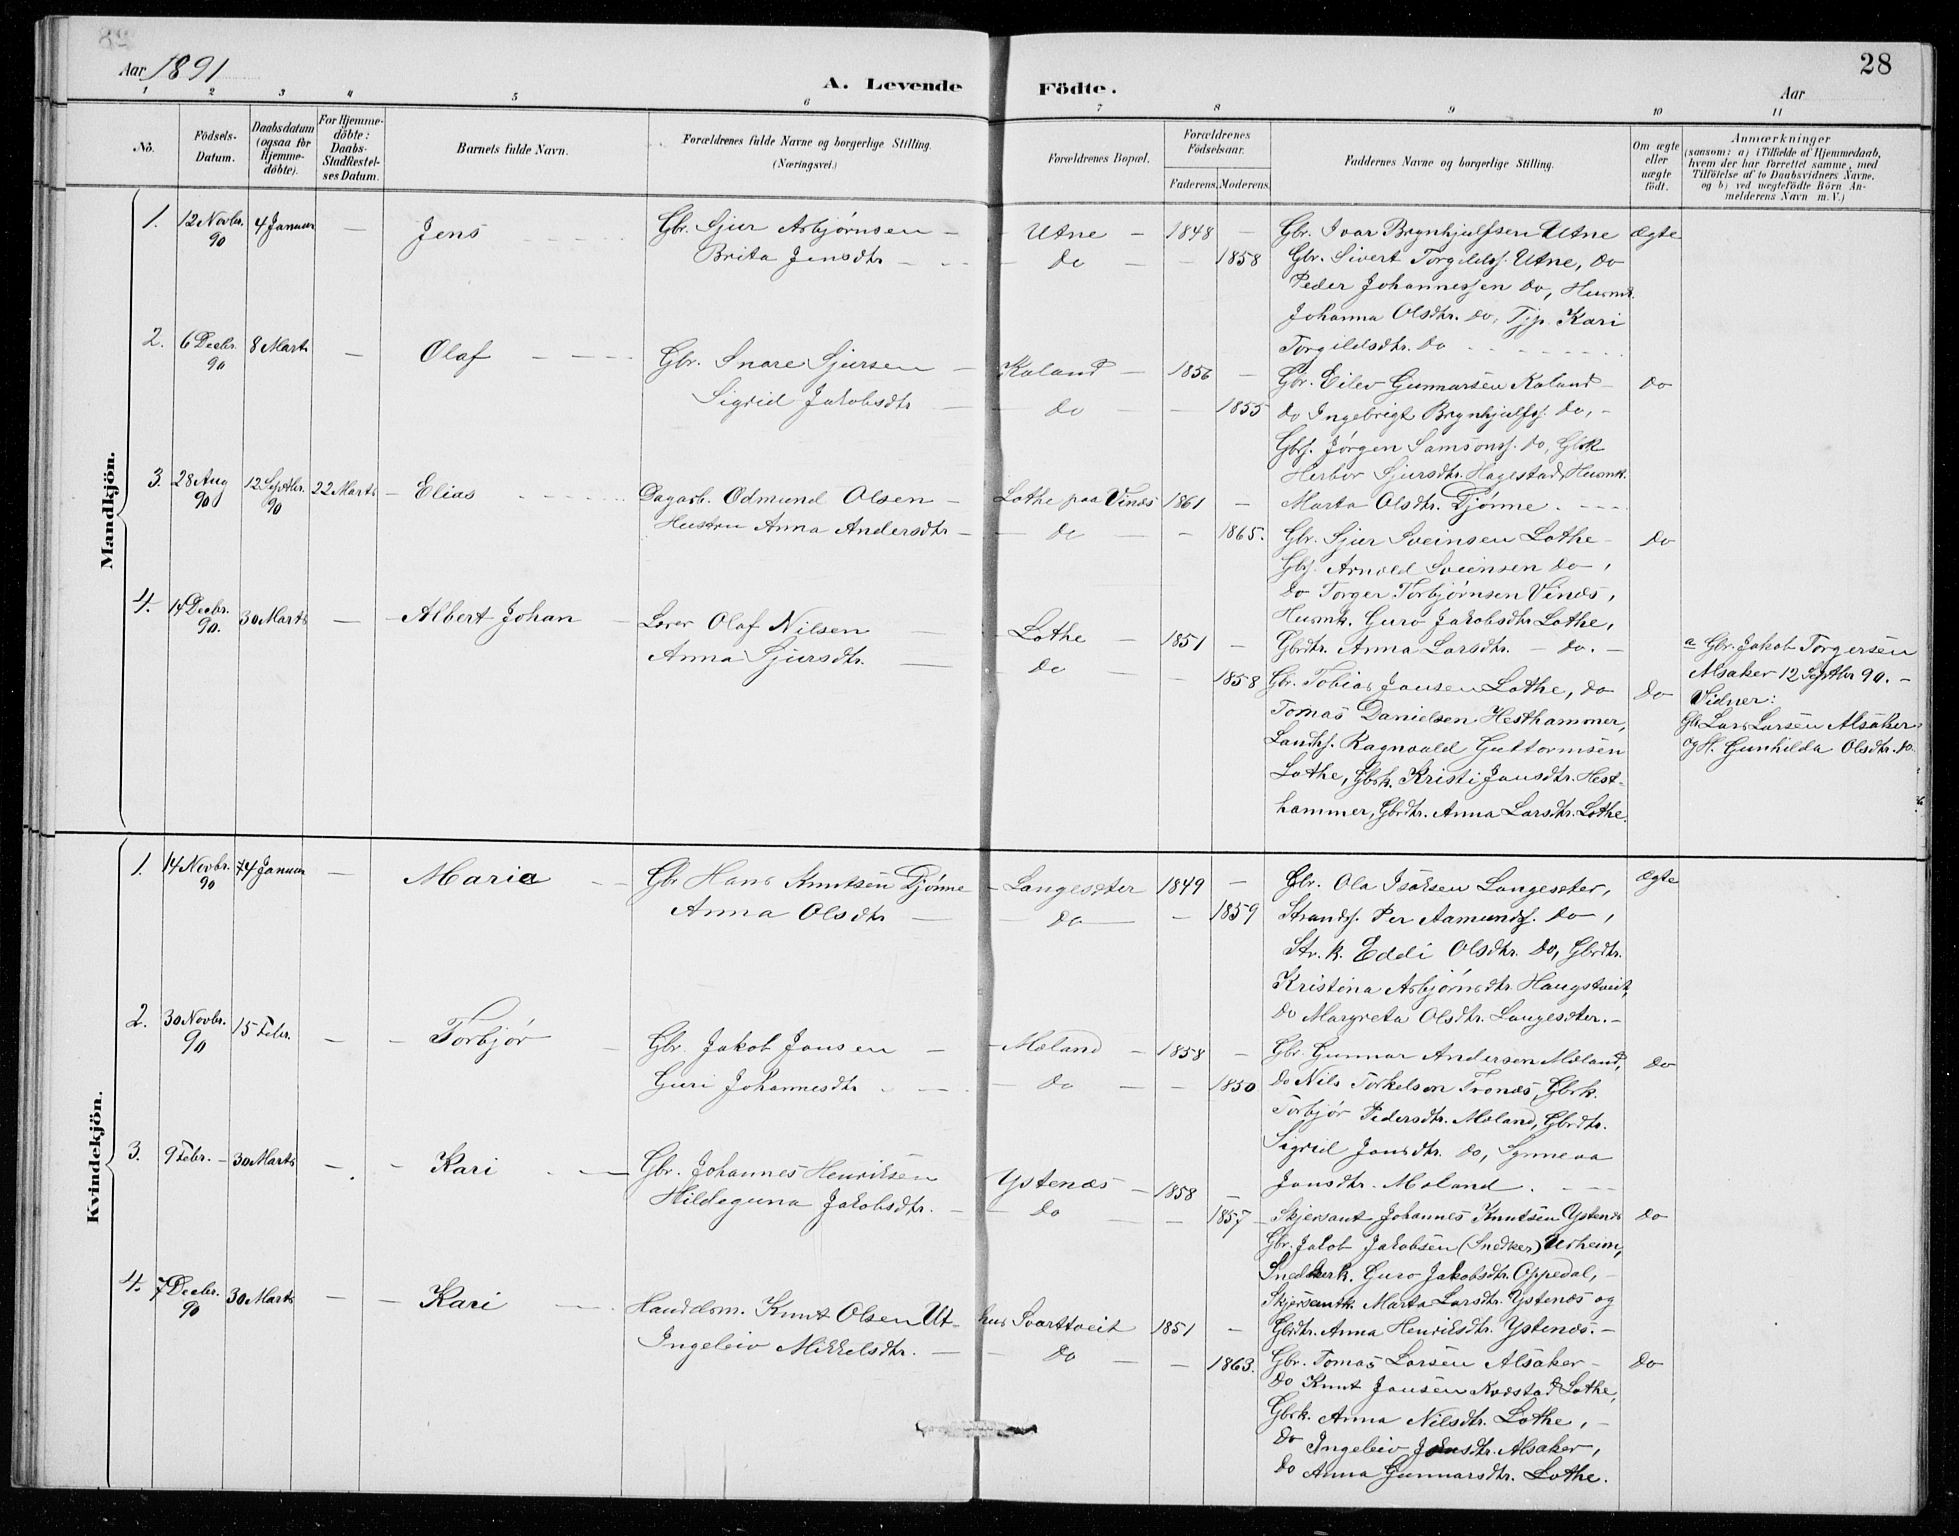 Aar 1891
A. Levende Födte.
28
Aar
1 2 3 4 5 6 7 8 9 10 11
No.
Födsels-Datum.
Daabsdatum (ogsaa for Hjemme-döbte).
For Hjemme-döbte: Daabs-Stadfæstel-ses Datum.
Barnets fulde Navn.
Forældrenes fulde Navne og borgerlige Stilling. (Næringsvei.)
Forældrenes Bopæl.
Forældrenes Födselsaar.
Faderens. Moderens.
Faddernes Navne og borgerlige Stilling.
Om ægte eller uægte födt.
Anmærkninger
(saasom: a) i Tilfælde af Hjemmedaab,
hvem der har forrettet samme, med
Tilföielse af to Daabsvidners Navne.
og b) ved uægtefödte Börn An-
melderens Navn m. V.)
Mandkjön.
1. 12 Novbr. 90 4 Januar — Jens Gbr. Sjur Asbjørnsen — Utne — 1848 — Gbr. Ivar Brynhjulfsen Utne ægte
Brita Jensdtr — Do — — 1858 Gbr. Sivert Torgildsj. Utne, Do
Peder Johannessen Do, Husmk.
Johanna Olsdtr. Do, Tjp. Kari
Torgildsdtr. Do
2. 6 Decbr. 90 8 Marts — Olaf Gbr. Snare Sjursen — Kaland — 1856 — Gbr. Eilev Gunnarsen Kaland — Do
Sigrid Jakobsdtr — Do — — 1855 Do Ingebrigt Brynhjulfsj. Do, —
Gbsj. Jørgen Samsonsj. Do, Gbrk
Herbor Sjursdtr. Hagestad, Husmk.
Marta Olsdtr. Djønne.
3 28 Aug 90 12 Septbr. 90 22 Marts — Elias Dagarb. Odmund Olsen — Lothe paa Vinæs 1861 —
Hustru Anna Andersdtr — Do — — 1865. Gbr. Sjur Sveinsen Lothe — Do
Gbsj. Arnold Sveinsen Do,
Do Torger Torbjørnsen Vinæs,
Husmk. Guro Jakobsdtr Lothe,
Gbrdtr. Anna Larsdtr. — Do. —
4. 14 Decbr. 90. 30 Marts — Albert Johan — Lærer Olaf Nilsen — Lothe — 1851 —
Anna Sjursdtr. — Do — — 1858 Gbr. Tobias Jansen Lothe, Do Do
Tomas Danielsen Hesthammer,
Landhj. Ragnvald Guttormsen
Lothe, Gbrk. Kristi Jansdtr. Hest-
hammer, Gbrdtr. Anna Larsdtr. Lothe.
a Gbr. Jakob Torgersen
Alsaker 12 Septbr 90. —
Vidner:
Gbr Lars Larsen Alsaker
og H. Gunhilda Olsdtr. Do
Kvindekjön.
1. 14 Novbr. 90 4 Januar — Maria — Gbr Hans Knutsen Djønne — Langesæter 1849 — Gbr. Ola Isaksen Langesæter, ægte
Anna Olsdtr — Do — — 1859 Strandsj. Per Aamundsj. Do,
Str.k. Eddi Olsdtr. Do, Gbrdtr.
Kristina Asbjørnsdtr Haugstveit,
Do Margreta Olsdtr. Langesæter. —
2. 30 Novbr. 90 15 Febr. — Torbjør — Gbr. Jakob Jansen — Mæland — 1858 — Gbr. Gunnar Andersen Mæland, Do
Guri Johannesdtr — Do — — 1850 Do Nils Torkelsen Tronæs, Gbrk.
Torbjør Pedersdtr. Mæland, Gbrdtr.
Sigrid Jansdtr. Do, Synneva
Jansdtr. Mæland.
3. 9 Febr. — 30 Marts — Kari — Gbr. Johannes Henriksen Ystenæs — 1858 —
Hildeguna Jakobsdtr. — Do — — 1857 — Skjersant Johannes Knutsen Ystenæs Do
Gbr. Jakob Jakobsen (Snedker) Urheim,
Snedkerk. Guro Jakobsdtr. Oppedal, —
Skjersantk. Marta Larsdtr. Ystenæs og
Gbrdtr. Anna Henriksdtr. Ystenæs. —
4. 7 Decbr. 90 30 Marts — Kari — Handelsm. Knut Olsen Ut- hus Svarttveit 1851 —
Ingeleiv Mikkelsdtr. — Do — — 1863. Gbr. Tomas Larsen Alsaker — Do
Do Knut Jansen Kvæstad Lothe,
Gbrk. Anna Nilsdtr. Lothe, —
Do Ingeleiv Jonsdtr. Alsaker,
Do Anna Gunnarsdtr. Lothe.